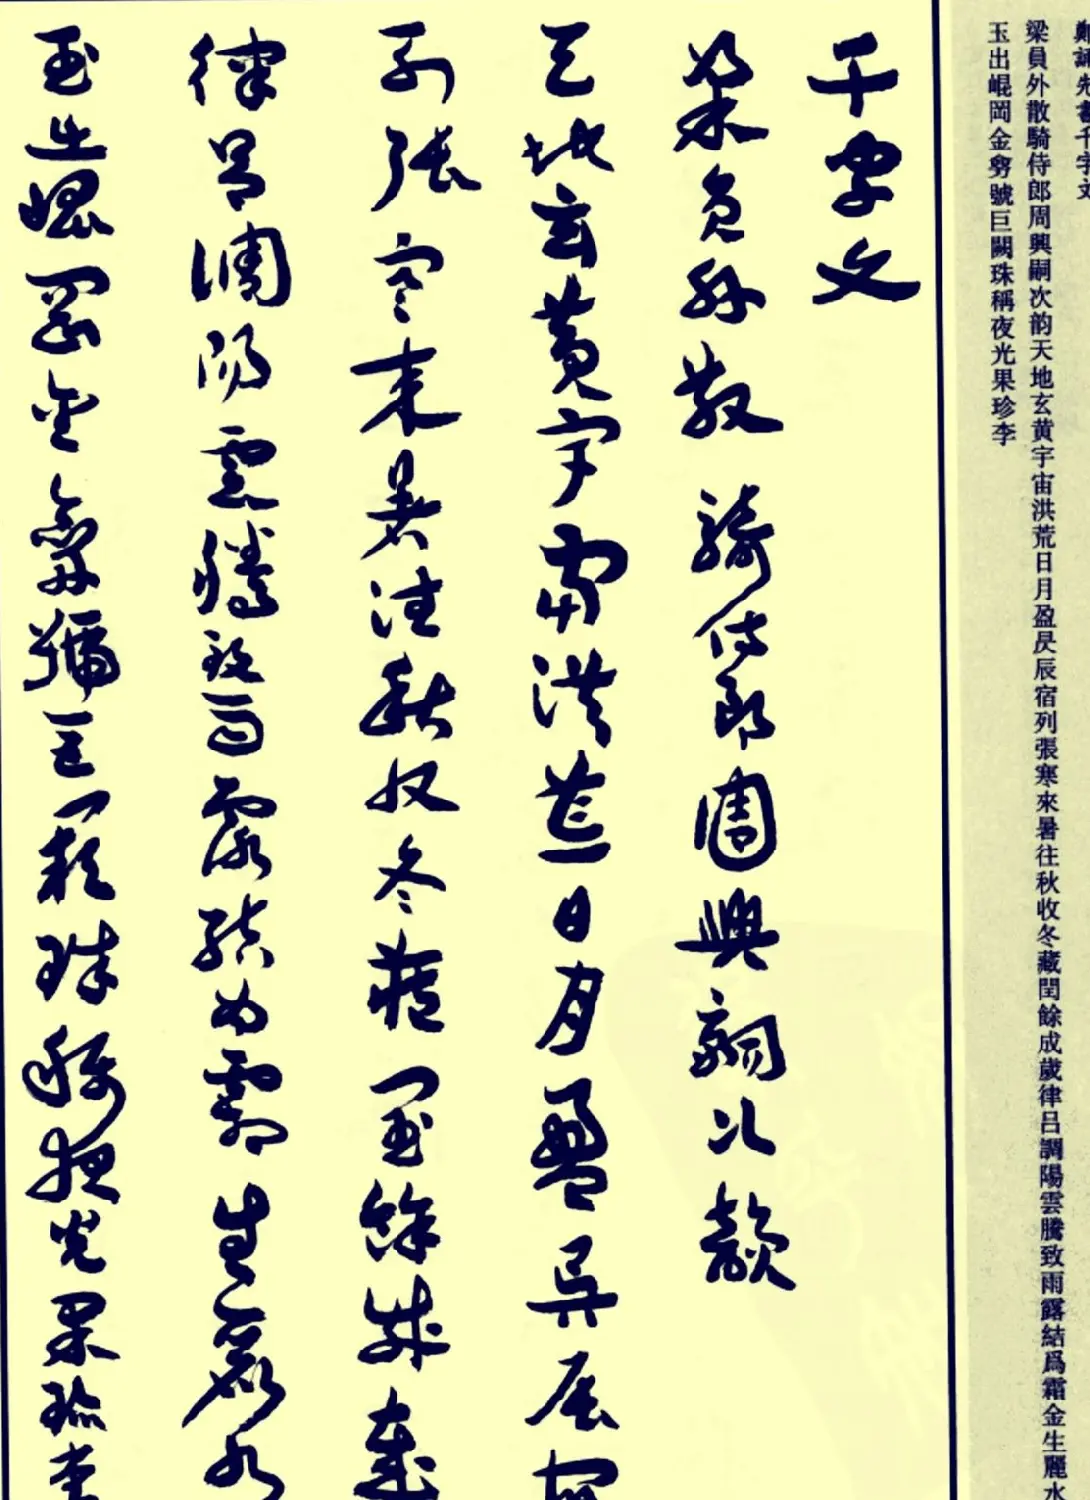 鄭誦先書千字文
梁員外散騎侍郎周興嗣次韵天地玄黄宇宙洪荒日月盈昃辰宿列張寒來暑往秋收冬藏閏餘成歲律吕調陽雲騰致雨露結爲霜金生麗水
玉出崐岡金劒號巨闕珠稱夜光果珍李
千字文
梁員外散騎侍郎周興嗣次韵
天地玄黄宇宙洪荒日月盈昃辰宿
列張寒來暑往秋收冬藏閏餘成歲
律吕調陽雲騰致雨露結为霜生麗水
玉出崐岡金劒號巨闕珠稱夜光果珍李